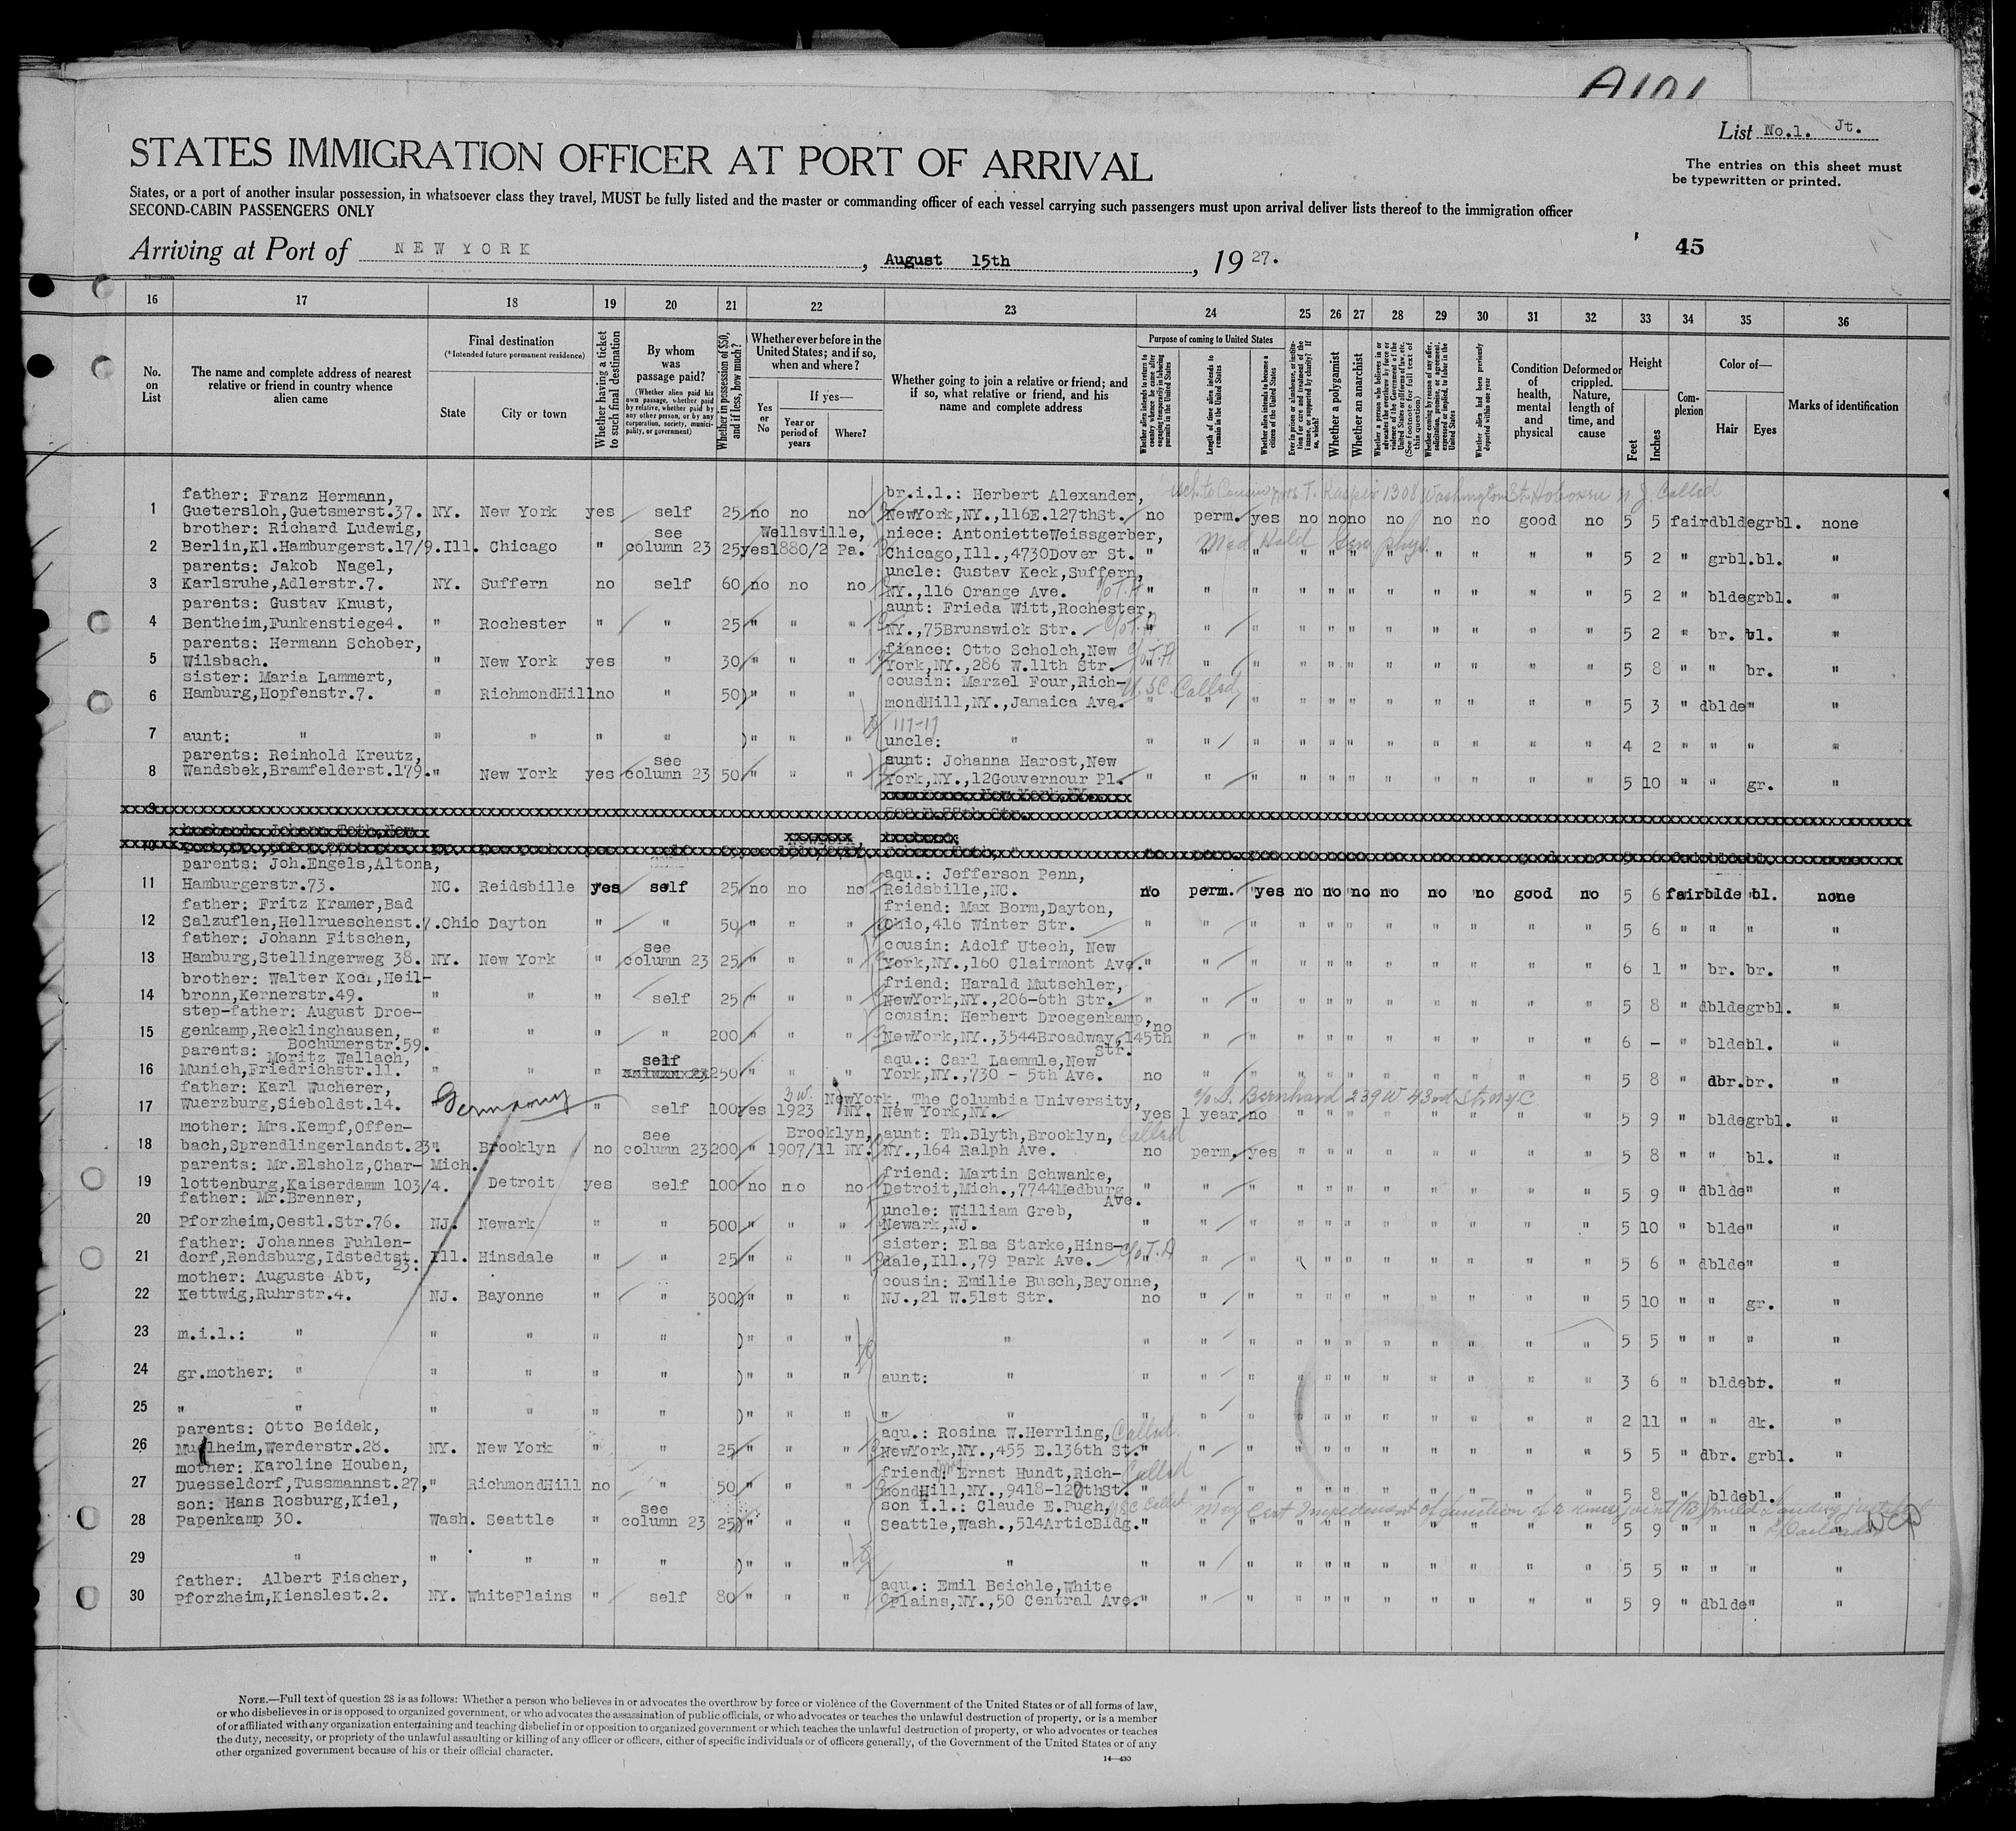 List No.1. Jt.
STATES IMMIGRATION OFFICER AT PORT OF ARRIVAL
The entries on this sheet must
be typewritten or printed.
States, or a port of another insular possession, in whatsoever class they travel, MUST be fully listed and the master or commanding officer of each vessel carrying such passengers must upon arrival deliver lists thereof to the immigration officer
SECOND-CABIN PASSENGERS ONLY
Arriving at Port of NEW YORK, August 15th, 1927.
45
16 17 18 19 20 21 22 23 24 25 26 27 28 29 30 31 32 33 34 35 36
No. on List
The name and complete address of nearest relative or friend in country whence alien came
Final destination
(*Intended future permanent residence)
State
City or town
Whether having a ticket to such final destination
By whom was passage paid?
(Whether alien paid his own passage, whether paid by relative, whether paid by any other person, or by any corporation, society, municipality, or government)
Whether in possession of $50, and if less, how much?
Whether ever before in the United States; and if so, when and where?
Yes or No
If yes—
Year or period of years
Where?
Whether going to join a relative or friend; and if so, what relative or friend, and his name and complete address
Purpose of coming to United States
Whether alien intends to return to country whence he came after engaging temporarily in laboring pursuits in the United States
Length of time alien intends to remain in the United States
Whether alien intends to become a citizen of the United States
Whether a polygamist
Whether an anarchist
Whether alien had been previously deported within one year
Condition of health, mental and physical
Deformed or crippled. Nature, length of time, and cause
Height
Feet
Inches
Complexion
Color of—
Hair
Eyes
Marks of identification
1 father: Franz Hermann, Guetersloh,Guetsmerst.37. NY. New York yes self 25 no no no br.i.l.: Herbert Alexander, NewYork,NY.,116E.127thSt. no perm. yes no no no no no no good no 5 5 fair dblde grbl. none
2 brother: Richard Ludewig, Berlin,Kl.Hamburgerst.17/9. Ill. Chicago " see column 23 25 yes 1880/2 Wellsville, Pa. niece: AntonietteWeissgerber, Chicago,Ill.,4730Dover St. " " " " " " " " " " " 5 2 " grbl. bl. "
3 parents: Jakob Nagel, Karlsruhe,Adlerstr.7. NY. Suffern no self 60 no no no uncle: Gustav Keck,Suffern, NY.,116 Orange Ave. " " " " " " " " " " " 5 2 " blde grbl. "
4 parents: Gustav Knust, Bentheim,Funkenstiege4. " Rochester " " 25 " " " aunt: Frieda Witt,Rochester, NY.,75Brunswick Str. " " " " " " " " " " " 5 2 " br. bl. "
5 parents: Hermann Schober, Wilsbach. " New York yes " 30 " " " fiance: Otto Scholch,New York,NY.,286 W.11th Str. " " " " " " " " " " " 5 8 " " br. "
6 sister: Maria Lammert, Hamburg,Hopfenstr.7. " RichmondHill no " 50 " " " cousin: Marzel Four,RichmondHill,NY.,Jamaica Ave. " " " " " " " " " " " 5 3 " dblde " "
117-17
7 aunt: " " " " " " " " uncle: " " " " " " " " " " " " 4 2 " " " "
8 parents: Reinhold Kreutz, Wandsbek,Bramfelderst.179. " New York yes see column 23 50 " " " aunt: Johanna Harost,New York,NY.,12Gouvernour Pl. " " " " " " " " " " " 5 10 " " gr. "
11 parents: Joh.Engels,Altona, Hamburgerstr.73. NC. Reidsbille yes self 25 no no no aqu.: Jefferson Penn, Reidsbille,NC. no perm. yes no no no no no no good no 5 6 fair blde bl. none
12 father: Fritz Kramer,Bad Salzuflen,Hellrueschenst.7. Ohio Dayton " " 50 " " " friend: Max Borm,Dayton, Ohio,416 Winter Str. " " " " " " " " " " " 5 6 " " " "
13 father: Johann Fitschen, Hamburg,Stellingerweg 38. NY. New York " see column 23 25 " " " cousin: Adolf Utech, New York,NY.,160 Clairmont Ave. " " " " " " " " " " " 6 1 " br. br. "
14 brother: Walter Kodr,Heilbronn,Kernerstr.49. " " " self 25 " " " friend: Harald Mutschler, NewYork,NY.,206-6th Str. " " " " " " " " " " " 5 8 " dblde grbl. "
15 step-father: August Droegenkamp,Recklinghausen, Bochumerstr.59. " " " " 200 " " " cousin: Herbert Droegenkamp, NewYork,NY.,3544Broadway,145th Str. no " " " " " " " " " " 6 - " blde bl. "
16 parents: Moritz Wallach, Munich,Friedrichstr.11. " " " self 250 " " " aqu.: Carl Laemmle,New York,NY.,730 - 5th Ave. no " " " " " " " " " " 5 8 " dbr. br. "
17 father: Karl Wucherer, Wuerzburg,Sieboldst.14. Germany " self 100 yes 1923 NewYork, NY. The Columbia University, New York,NY. yes 1 year no " " " " " " " " 5 9 " blde grbl. "
18 mother: Mrs.Kempf,Offenbach,Sprendlingerlandst.23. " Brooklyn no see column 23 200 " 1907/11 Brooklyn, NY. aunt: Th.Blyth,Brooklyn, NY.,164 Ralph Ave. Called no perm. yes " " " " " " " " 5 8 " " bl. "
19 parents: Mr.Elsholz,Charlottenburg,Kaiserdamm 103/4. Mich. Detroit yes self 100 no no no friend: Martin Schwanke, Detroit,Mich.,7744Medburg Ave. " " " " " " " " " " " 5 9 " dblde " "
20 father: Mr.Brenner, Pforzheim,Oestl.Str.76. NJ. Newark " " 500 " " " uncle: William Greb, Newark,NJ. " " " " " " " " " " " 5 10 " blde " "
21 father: Johannes Fuhlendorf,Rendsburg,Idstedtst. 23. Ill. Hinsdale " " 25 " " " sister: Elsa Starke,Hinsdale,Ill.,79 Park Ave. " " " " " " " " " " " 5 6 " dblde " "
22 mother: Auguste Abt, Kettwig,Ruhrstr.4. NJ. Bayonne " " 300 " " " cousin: Emilie Busch,Bayonne, NJ.,21 W.51st Str. no " " " " " " " " " " 5 10 " " gr. "
23 m.i.l.: " " " " " " " " " " " " " " " " " " " " " 5 5 " " " "
24 gr.mother: " " " " " " " " aunt: " " " " " " " " " " " " 3 6 " blde br. "
25 " " " " " " " " " " " " " " " " " " " " " " 2 11 " " dk. "
26 parents: Otto Beidek, Muelheim,Werderstr.28. NY. New York " " 25 " " " aqu.: Rosina W.Herrling, NewYork,NY.,455 E.136th St. Called " " " " " " " " " " " 5 5 " dbr. grbl. "
27 mother: Karoline Houben, Duesseldorf,Tussmannst.27, " RichmondHill no " 50 " " " friend: Ernst Hundt,RichmondHill,NY.,9418-120thSt. Called " " " " " " " " " " " 5 8 " blde bl. "
28 son: Hans Rosburg,Kiel, Papenkamp 30. Wash. Seattle " see column 23 25 " " " son i.l.: Claude E.Pugh, Seattle,Wash.,514ArticBldg. " 5 9 " " " "
29 " " " " " " " " " " " " " " " " " " " " 5 5 " " " "
30 father: Albert Fischer, Pforzheim,Kienslest.2. NY. WhitePlains " self 80 " " " aqu.: Emil Beichle,White Plains,NY.,50 Central Ave. " " " " " " " " " " " 5 9 " dblde " "
NOTE.—Full text of question 28 is as follows: Whether a person who believes in or advocates the overthrow by force or violence of the Government of the United States or of all forms of law,
or who disbelieves in or is opposed to organized government, or who advocates the assassination of public officials, or who advocates or teaches the unlawful destruction of property, or is a member
of or affiliated with any organization entertaining and teaching disbelief in or opposition to organized government or which teaches the unlawful destruction of property, or who advocates or teaches
the duty, necessity, or propriety of the unlawful assaulting or killing of any officer or officers, either of specific individuals or of officers generally, of the Government of the United States or of any
other organized government because of his or their official character.
14—430